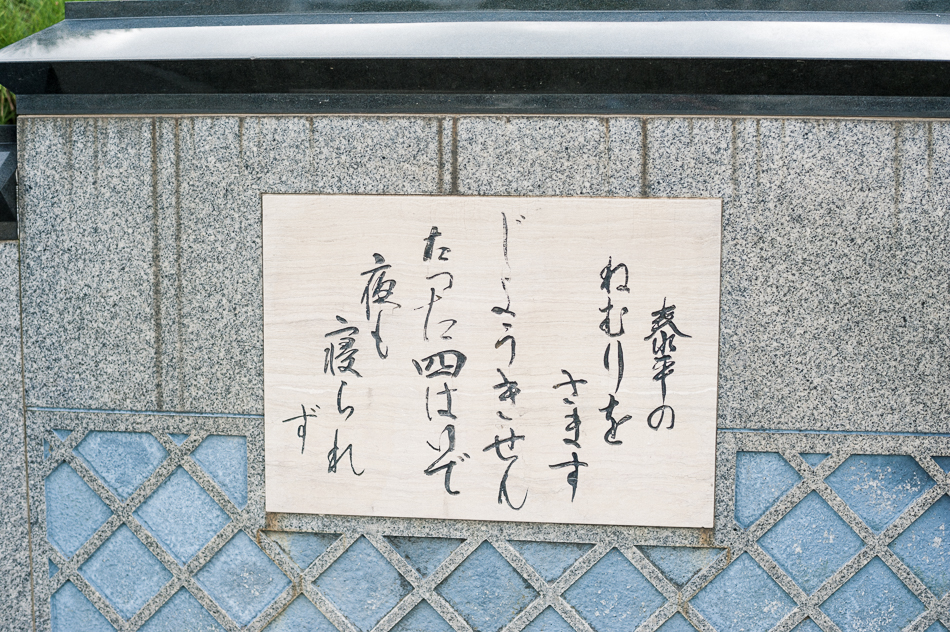 泰平の
ねむりを
さます
じょうきせん
たった四はいで
夜も
寝られ
ず